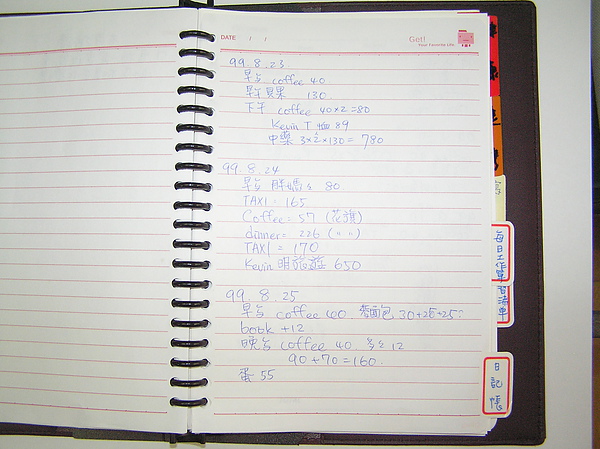 DATE / /
Get!
Your Favorite Life
99.8.23
早台 coffee 40
130
下午 coffee 40×2=80
Kevin T恤 89
中藥 3×2×130= 780
99.8.24
早台 胖媽台 80
TAXI = 165
Coffee = 57 (花旗)
dinner = 226 (〃 〃)
TAXI = 170
Kevin 明旅遊 650
99.8.25
早台 coffee 40. 麵包 30+25+25=
book +12
晚台 coffee 40 12
90+70=160.
蛋 55
每日工作單
清單
日記帳